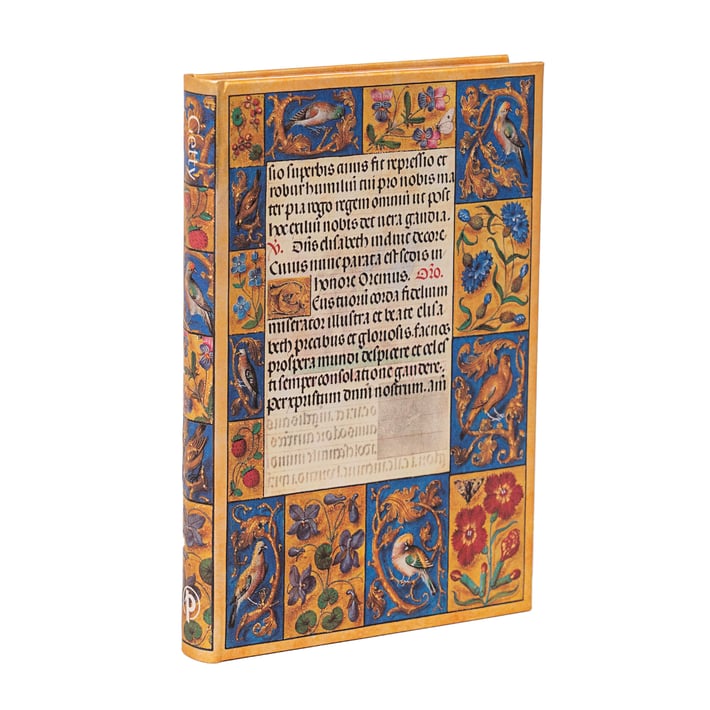 Getty
sio superbis cuius fit repressio et
robur humiliū tui pro nobis ma
ter pia rogo regem omniū ut post
hoc exiliū nobis det vera gaudia.
V. elisabeth decore
Cuius nunc parata est sedis in
honore Oremus. Oro.
Deus tuorū corda fidelium
miserator illustra et beate elisa
beth precibus et gloriosis. fac nos
prospera mundi despicere et celes
ti semper consolatione gaudere.
Per xpristum dnm nostrum. am